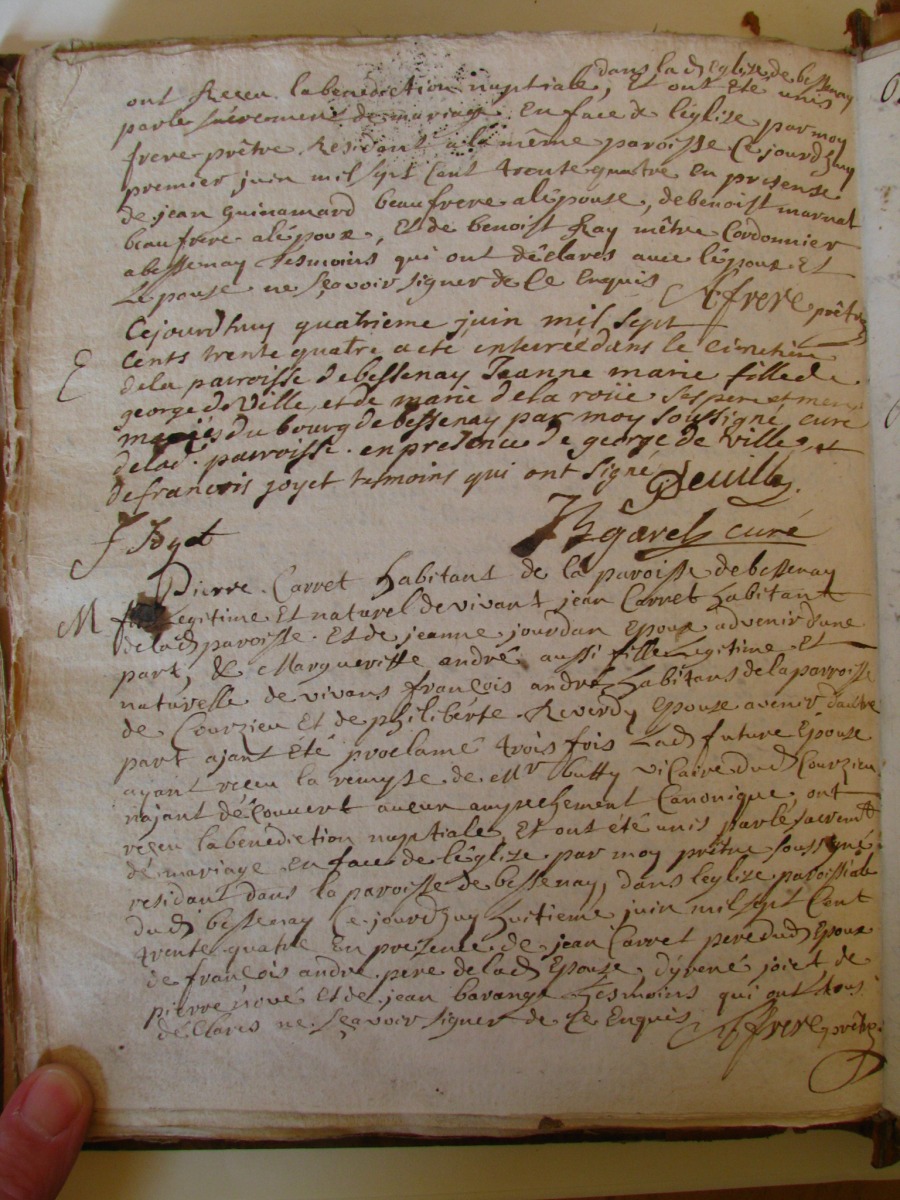 dans la dt Eglise de bessenay
ont Reçeu la benediction nuptiale, Et ont été unis
par le sacrement de mariage En face de l'église par moy
frere prêtre Residant a la même paroisse Ce jourdhuy
premier juin mil sept Cent trente quatre En presense
de jean guinamard beaufrere a lépouse, de benoist marnat
beaufrere a lépoux, Et de benoist Ray mêtre Cordonnier
a bessenay Tesmoins qui ont déclarés avec lépoux Et
Lépouse ne sçavoir signer de Ce Enquis
A frere prêtre
Cejourdhuy quatrieme juin mil sept
E
Cents trente quatre a eté enterrée dans le cimetiere
de la parroisse de bessenay Jeanne marie fille de
george de Ville et de marie de la roüe ses pere et mere
mariés du bourg de bessenay par moy soussigné curé
de lad. parroisse en presence de george de ville, et
de francois joyet temoins qui ont signé
Deville
J Joyet
curé
M
Pierre Carret habitant de la paroisse de bessenay
Legitime Et naturel de vivant jean Carret habitant
de la dt paroisse Et de jeanne jourdan Epoux advenir dune
part, & Margueritte andré aussi fille Legitime Et
naturelle de vivans françois andré habitans de la parroisse
de Courzieu Et de philiberte Reverdy Epouse avenir dautre
part ajant Eté proclamé trois fois Ladt future Epouse
ayant reçeu la remyse de Mr butty vicaire dudt Courzieu
najant découvert aucun ampechement Canonique, ont
reçeu la bénédiction nuptiale, Et ont été unis par le sacremt
de mariage En face de léglize par moy prêtre soussigné
residant dans la paroisse de bessenay, dans leglize paroissiale
dudt bessenay Ce jourdhuy huitieme juin mil sept Cent
trente quatre En presence de jean Carret pere dudt Epoux
de françois andre pere de ladt Epouse, dyrené joiet de
pierre Et de jean barange Tesmoins qui ont tous
déclarés ne sçavoir signer de Ce Enquis
A frere prêtre